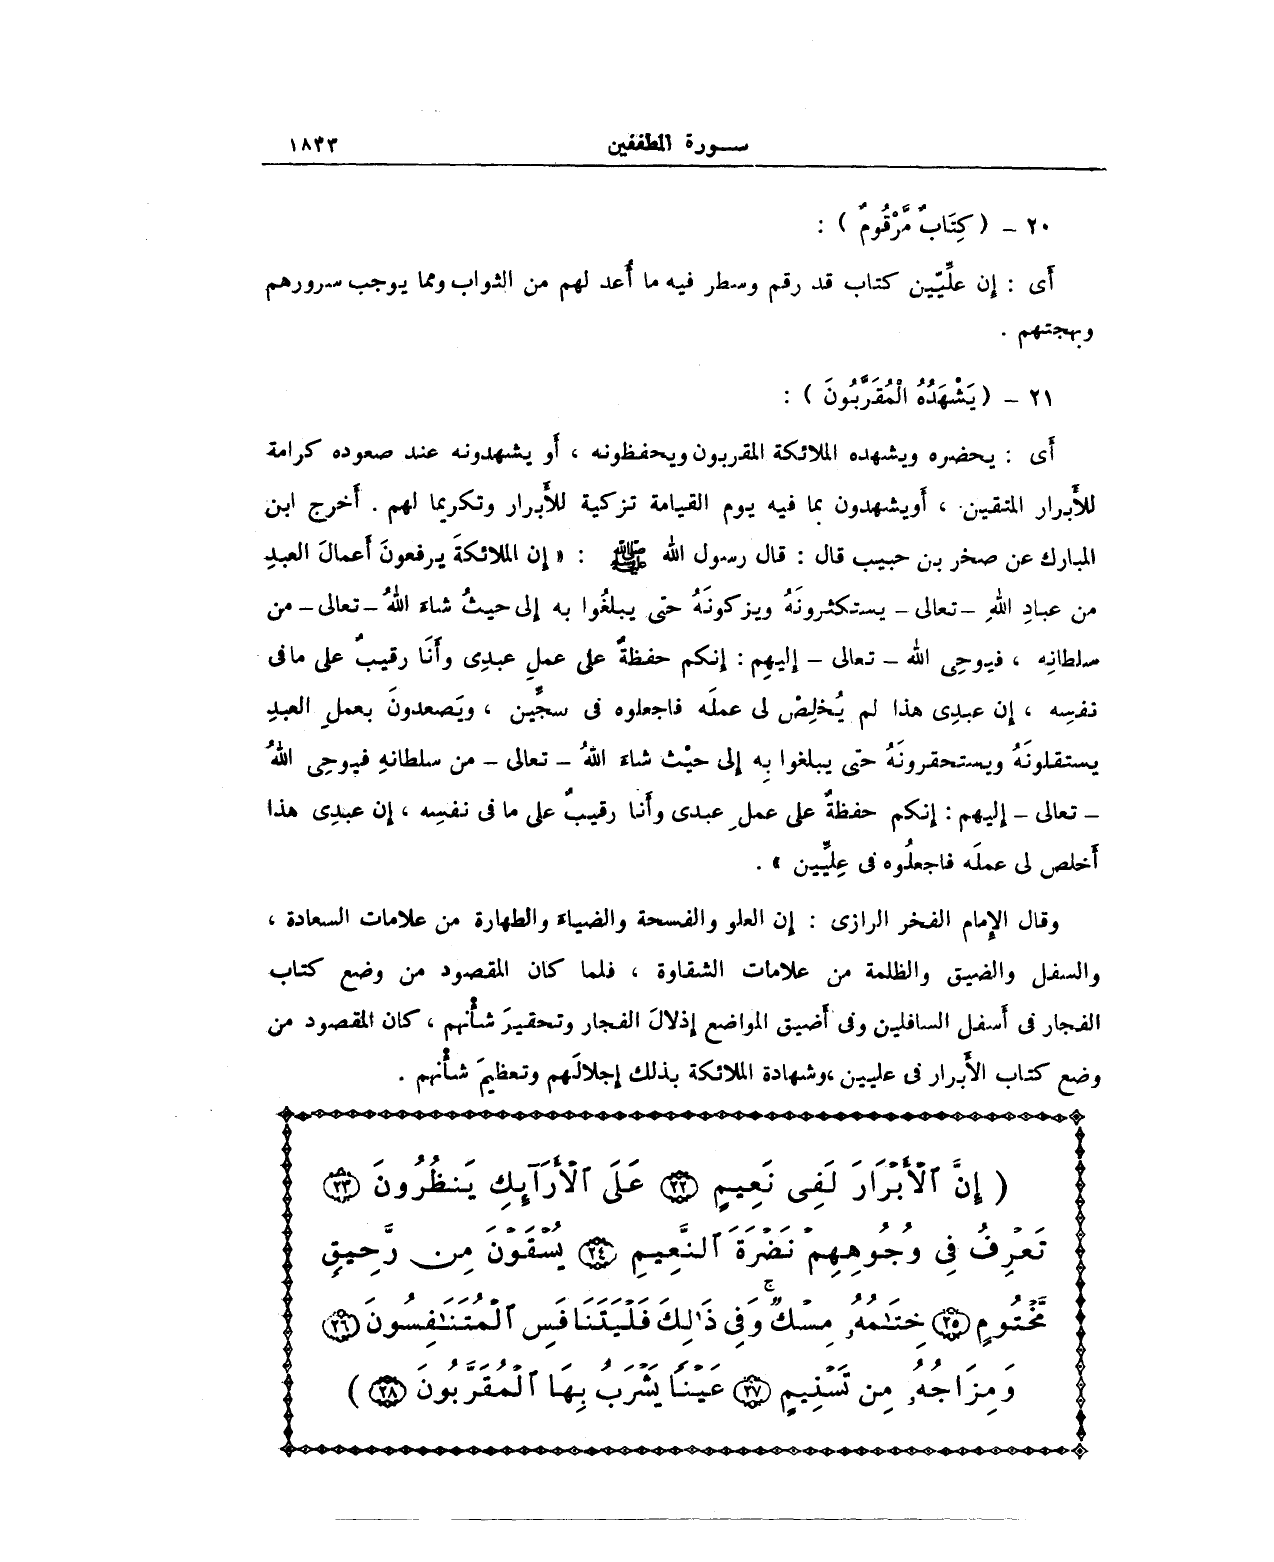 سورة المطففين ١٨٣٣
٢٠ - ( كِتَابٌ مَّرْقُومٌ ) :
أى : إن علِّيّين كتاب قد رقم وسطر فيه ما أُعد لهم من الثواب ومما يوجب سرورهم
وبهجتهم .
٢١ - ( يَشْهَدُهُ الْمُقَرَّبُونَ ) :
أى : يحضره ويشهده الملائكة المقربون ويحفظونه ، أو يشهدونه عند صعوده كرامة
للأَبرار المتقين ، أَويشهدون بما فيه يوم القيامة تزكية للأَبرار وتكريما لهم . أَخرج ابن
المبارك عن صخر بن حبيب قال : قال رسول الله ﷺ : « إن الملائكةَ يرفعونَ أَعمالَ العبدِ
من عبادِ اللهِ - تعالى - يستكثرونَهُ ويزكونَهُ حتى يبلغُوا به إلى حيثُ شاءَ اللهُ - تعالى - من
سلطانِه ، فيوحِى الله - تعالى - إليهِم : إنكم حفظةٌ على عملِ عبدِى وأَنَا رقيبٌ على مافى
نفسِه ، إن عبدِى هذا لم يُخلِصْ لى عملَه فاجعلوه فى سجِّين ، ويَصعدونَ بعملِ العبدِ
يستقلونَهُ ويستحقرونَهُ حتى يبلغوا بِه إلى حيْث شاءَ اللهُ - تعالى - من سلطانهِ فيوحِى اللهُ
- تعالى - إليهم : إنكم حفظةٌ على عملِ عبدى وأَنا رقيبٌ على ما فى نفسِه ، إن عبدِى هذا
أَخلص لى عملَه فاجعلُوه فى عِليِّين » .
وقال الإمام الفخر الرازى : إن العلو والفسحة والضياءَ والطهارة من علامات السعادة ،
والسفل والضيق والظلمة من علامات الشقاوة ، فلما كان المقصود من وضع كتاب
الفجار فى أسفل السافلين وفى أَضيق المواضع إذلالَ الفجار وتحقيرَ شأْنهم ، كان المقصود من
وضع كتاب الأَبرار فى عليين ،وشهادة الملائكة بذلك إجلالَهم وتعظيمَ شأْنهم .
( إِنَّ ٱلْأَبْرَارَ لَفِى نَعِيمٍ ٢٢ عَلَى ٱلْأَرَآئِكِ يَنظُرُونَ ٢٣
تَعْرِفُ فِى وُجُوهِهِمْ نَضْرَةَ ٱلنَّعِيمِ ٢٤ يُسْقَوْنَ مِن رَّحِيقٍ
مَّخْتُومٍ ٢٥ خِتَـٰمُهُۥ مِسْكٌ ۚ وَفِى ذَٰلِكَ فَلْيَتَنَافَسِ ٱلْمُتَنَـٰفِسُونَ ٢٦
وَمِزَاجُهُۥ مِن تَسْنِيمٍ ٢٧ عَيْنًا يَشْرَبُ بِهَا ٱلْمُقَرَّبُونَ ٢٨ )